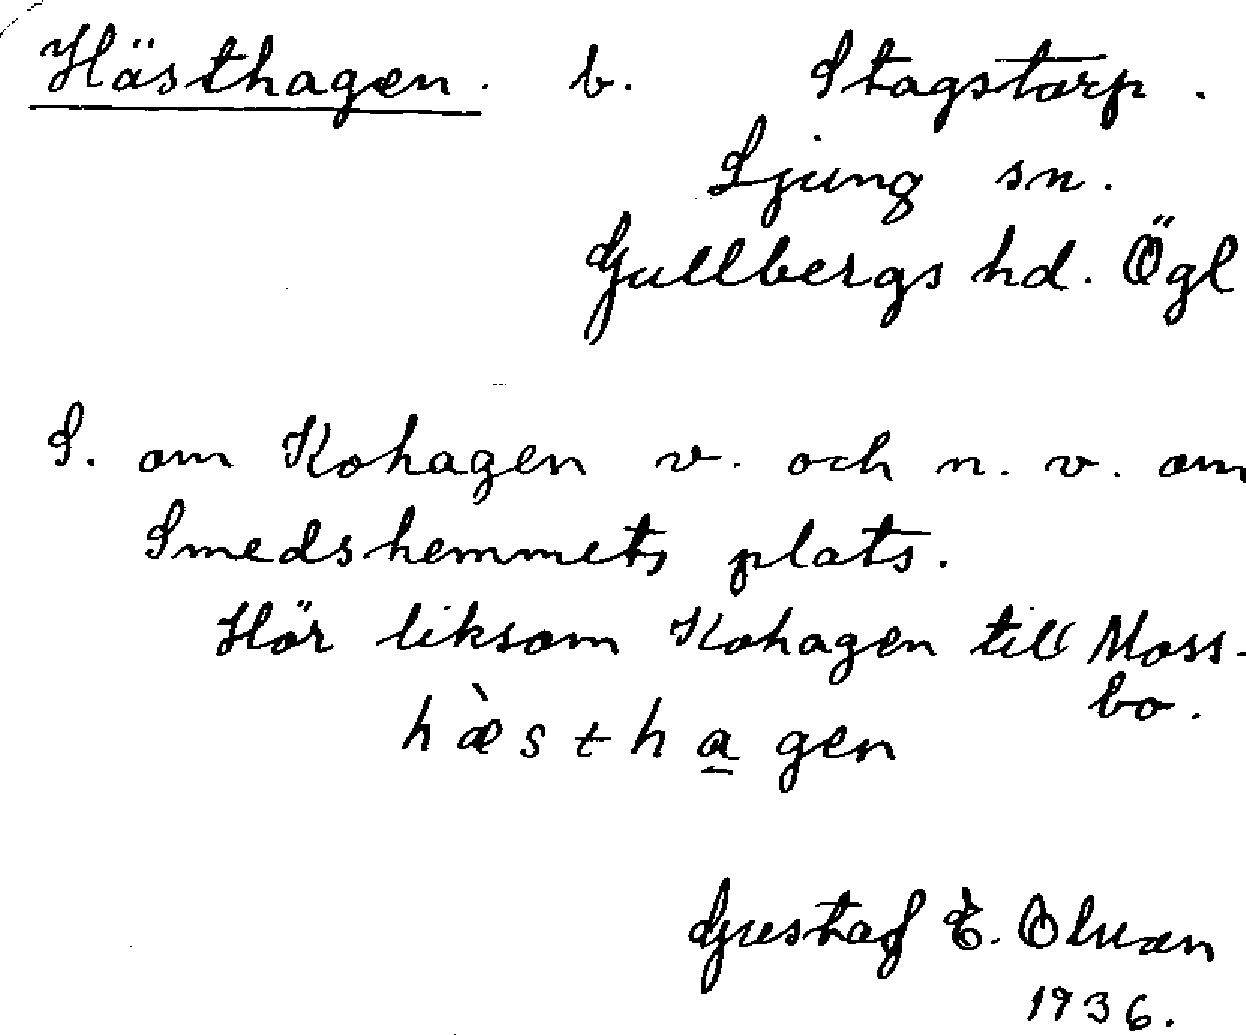 Hästhagen. b. Stagstorp.
Ljung sn.
Gullbergs hd. Ögl
S. om Kohagen v. och n. v. om
Smedshemmets plats.
Hör liksom Kohagen till Moss-
bo.
hæ̀sthа̱gen
Gustaf E.
1936.